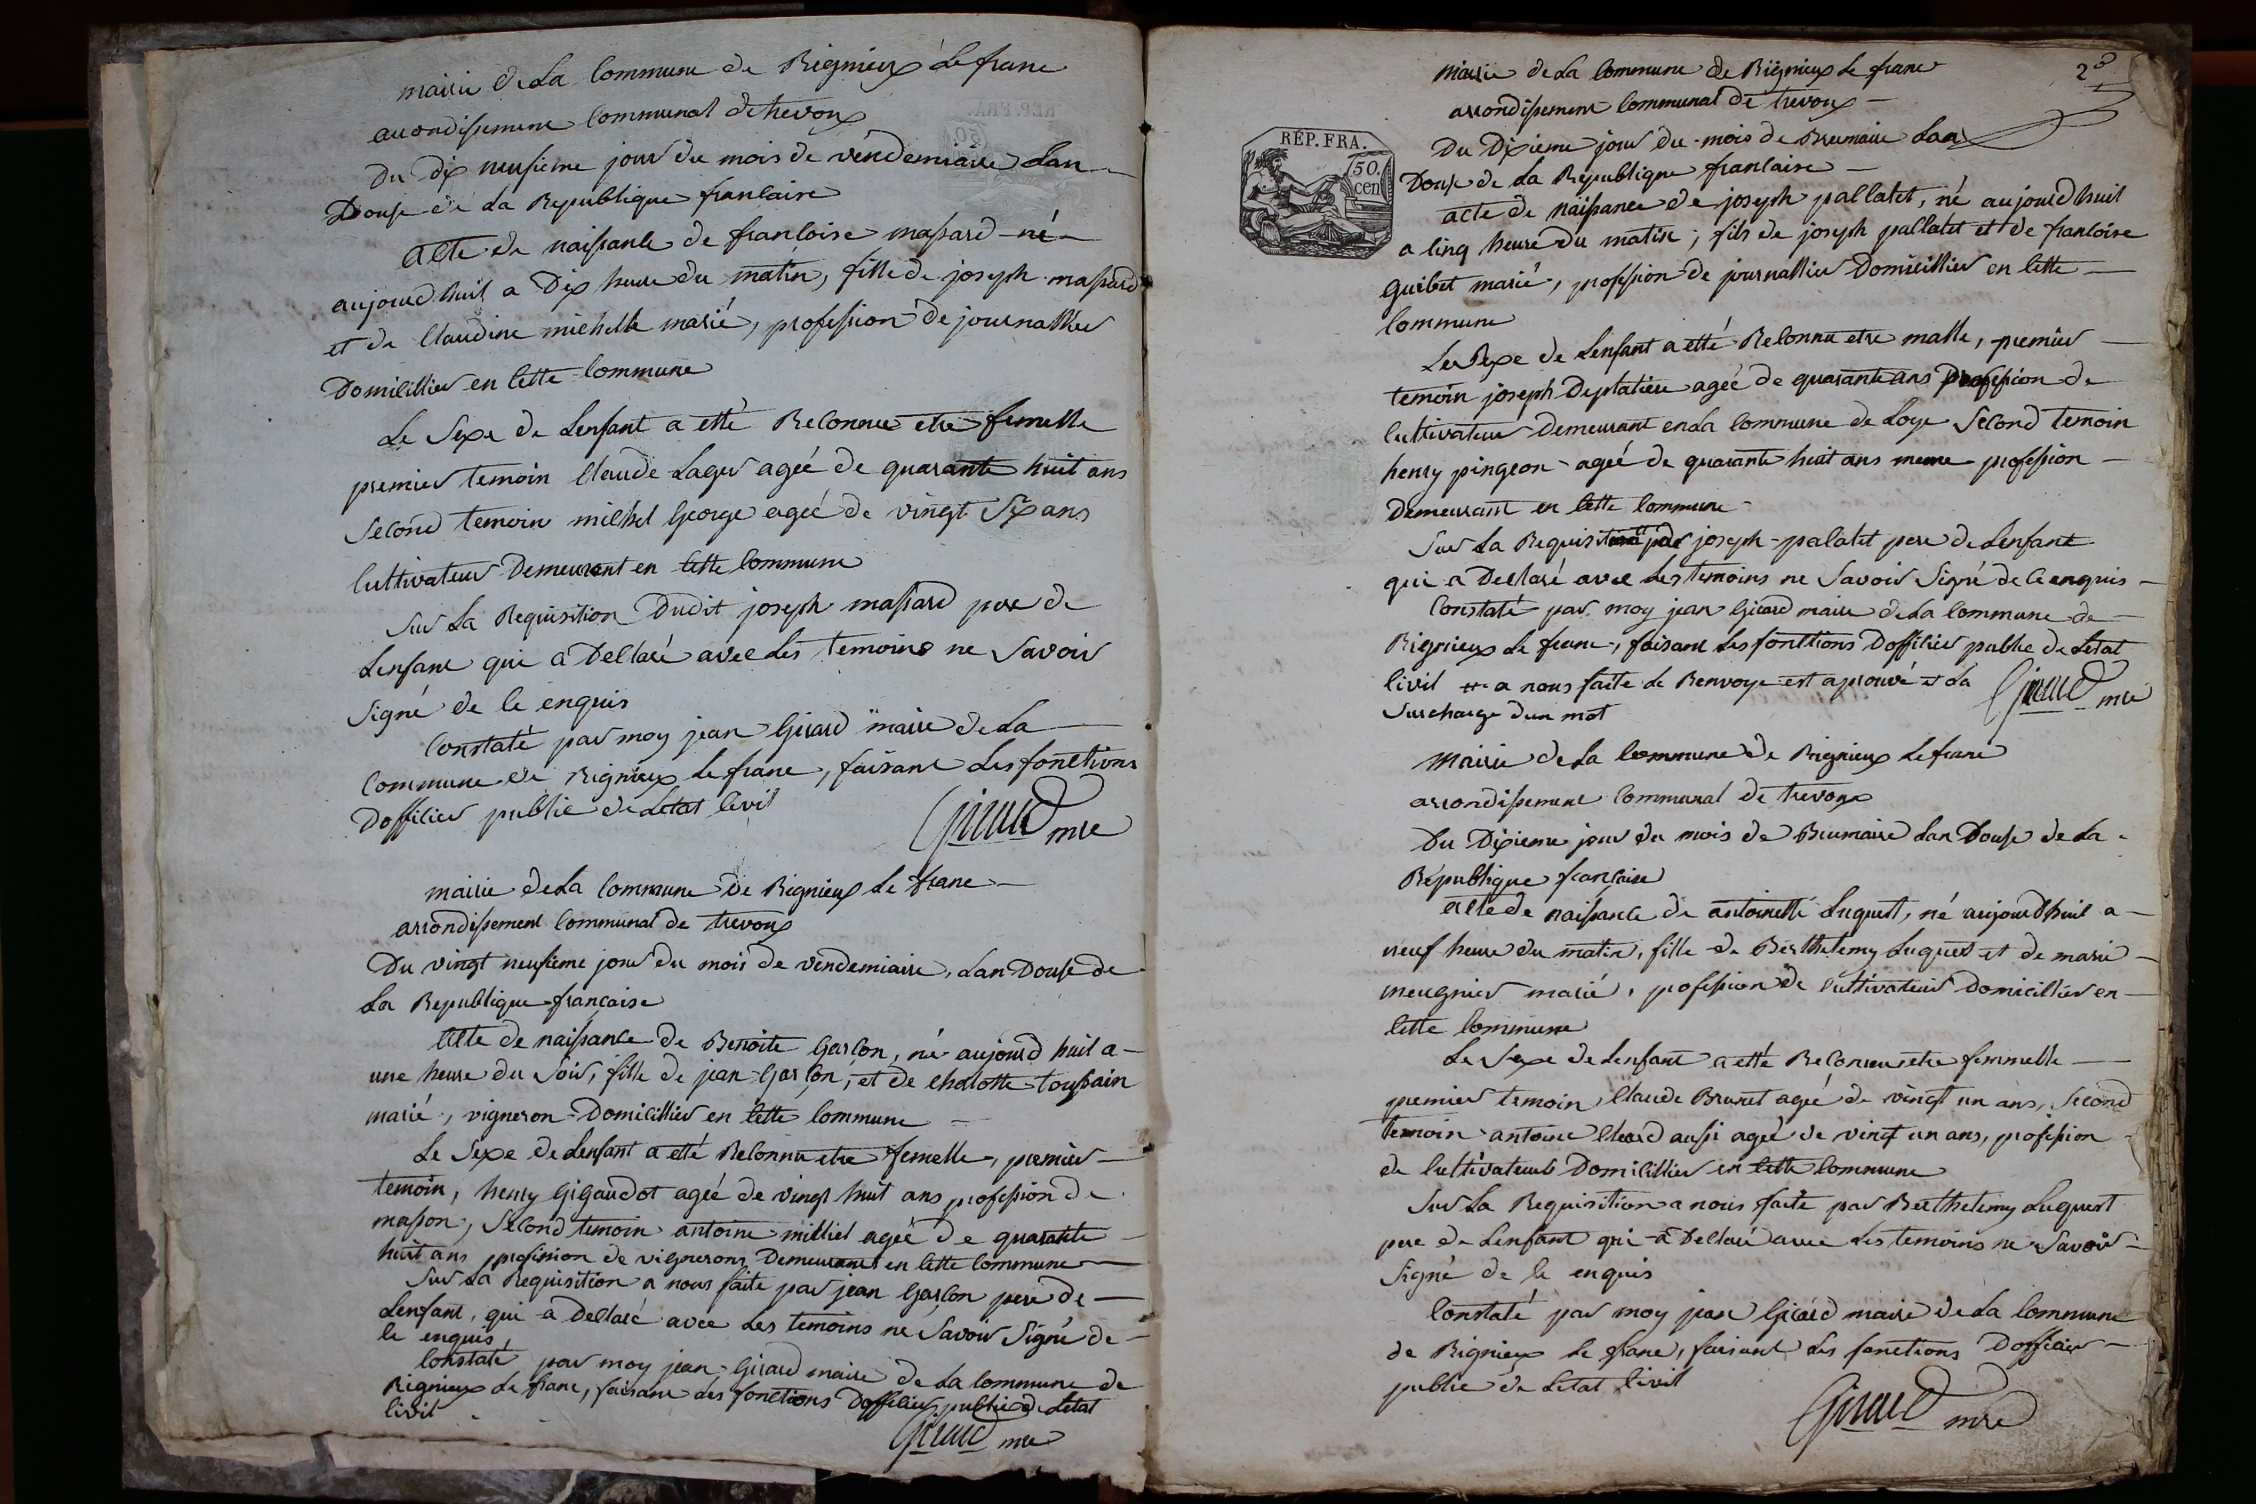 mairie de La Commune de Rignieux Le franc
arrondissement Communal de trevoux
Du Dix neufieme jour du mois de vendemiaire Lan
Douse de La Republique francaise
Acte de naissance de francoise massard né
aujourd'huit a Dix heure du matin, fille de joseph massard
et de Claudine michelle marié, profession de journallier
Domicillier en cette commune
Le Sexe de Lenfant a etté Reconnue etre femelle
premier temoin Claude Lager ageé de quarante huit ans
Second temoin michel George ageé de vingt Six ans
Cultivateur Demeurant en cette commune
Sur La Requisition Dudit joseph massard pere de
Lenfant qui a Declaré avec Les temoins ne Savoir
Signé de ce enquis
Constaté par moy jean Girard maire de La
Commune de Rignieux Le franc, faisant Les fonctions
Dofficier public de Letat Civil
Girard mre
mairie de La Commune de Rignieux Le franc
arrondissement Communal de trevoux
Du vingt neufieme jour du mois de vendemiaire, Lan Douse de
La Republique francaise
Acte de naissance de Benoite Garcon, né aujourd huit a
une heure du Soir, fille de jean Garcon, et de chalotte toussain
marié, vigneron Domicillier en cette commune
Le Sexe de Lenfant a etté Reconnu etre femelle, premier
temoin, henry Gigaudot ageé de vingt huit ans profession de
masson, Second temoin antoine milliet ageé de quarante
huit ans profission de vignerons Demeurant en cette commune
Sur La Requisition a nous faite par jean Garcon pere de
Lenfant, qui a Declaré avec Les temoins ne Savoir Signé de
ce enquis
Constaté par moy jean Girard maire de La commune de
Rignieux Le franc, faisant Les fonctions Dofficier public de Letat
Civil
Girard mre
2
mairie de La Commune de Rignieux Le franc
arrondissement Communal de trevoux
REP. FRA.
50.
cen
Du Dixieme jour du mois de Brumaire Lan
Douse de La Republique francaise
acte de naissance de joseph pallatet, né aujourdhuit
a cinq heure du matin, fils de joseph pallatet et de francoise
Guibet marié, profession de journallier Domicillier en cette
commune
Le Sexe de Lenfant a etté Reconnu etre malle, premier
temoin joseph Deplatiere ageé de quarante ans profession de
Cultivateur Demeurant en La commune de Loye Second temoin
henry pingeon ageé de quarante huit ans meme profession
Demeurant en cette commune
Sur La Requisition par joseph palatet pere de Lenfant
qui a Declaré avec Les temoins ne Savoir Signé de ce enquis
Constaté par moy jean Girard maire de La Commune de
Rignieux Le franc, faisant Les fonctions Dofficier public de Letat
Civil a nous faite Le Renvoye est aprouvé et La
Surcharge dun mot
Girard mre
mairie de La Commune de Rignieux Le franc
arrondissement Communal de trevoux
Du Dixieme jour du mois de Brumaire Lan Douse de La
Republique francaise
Acte de naissance de antoinette Luquest, né aujourdhuit a
neuf heure du matin, fille de Berthelemy Luquest et de marie
meugnier marié, profession de Cultivateur Domicillier en
cette commune
Le Sexe de Lenfant a etté Reconnu etre femmelle
premier temoin, Claude Brunet ageé de vingt un ans, Second
temoin antoine aussi ageé de vingt un ans, profession
de Cultivateur Domicillier en cette commune
Sur La Requisition a nous faite par Berthelemy Luquest
pere de Lenfant qui a Declaré avec Les temoins ne Savoir
Signé de ce enquis
Constaté par moy jean Girard maire de La Commune
de Rignieux Le franc, faisant Les fonctions Dofficier
public de Letat Civil
Girard mre